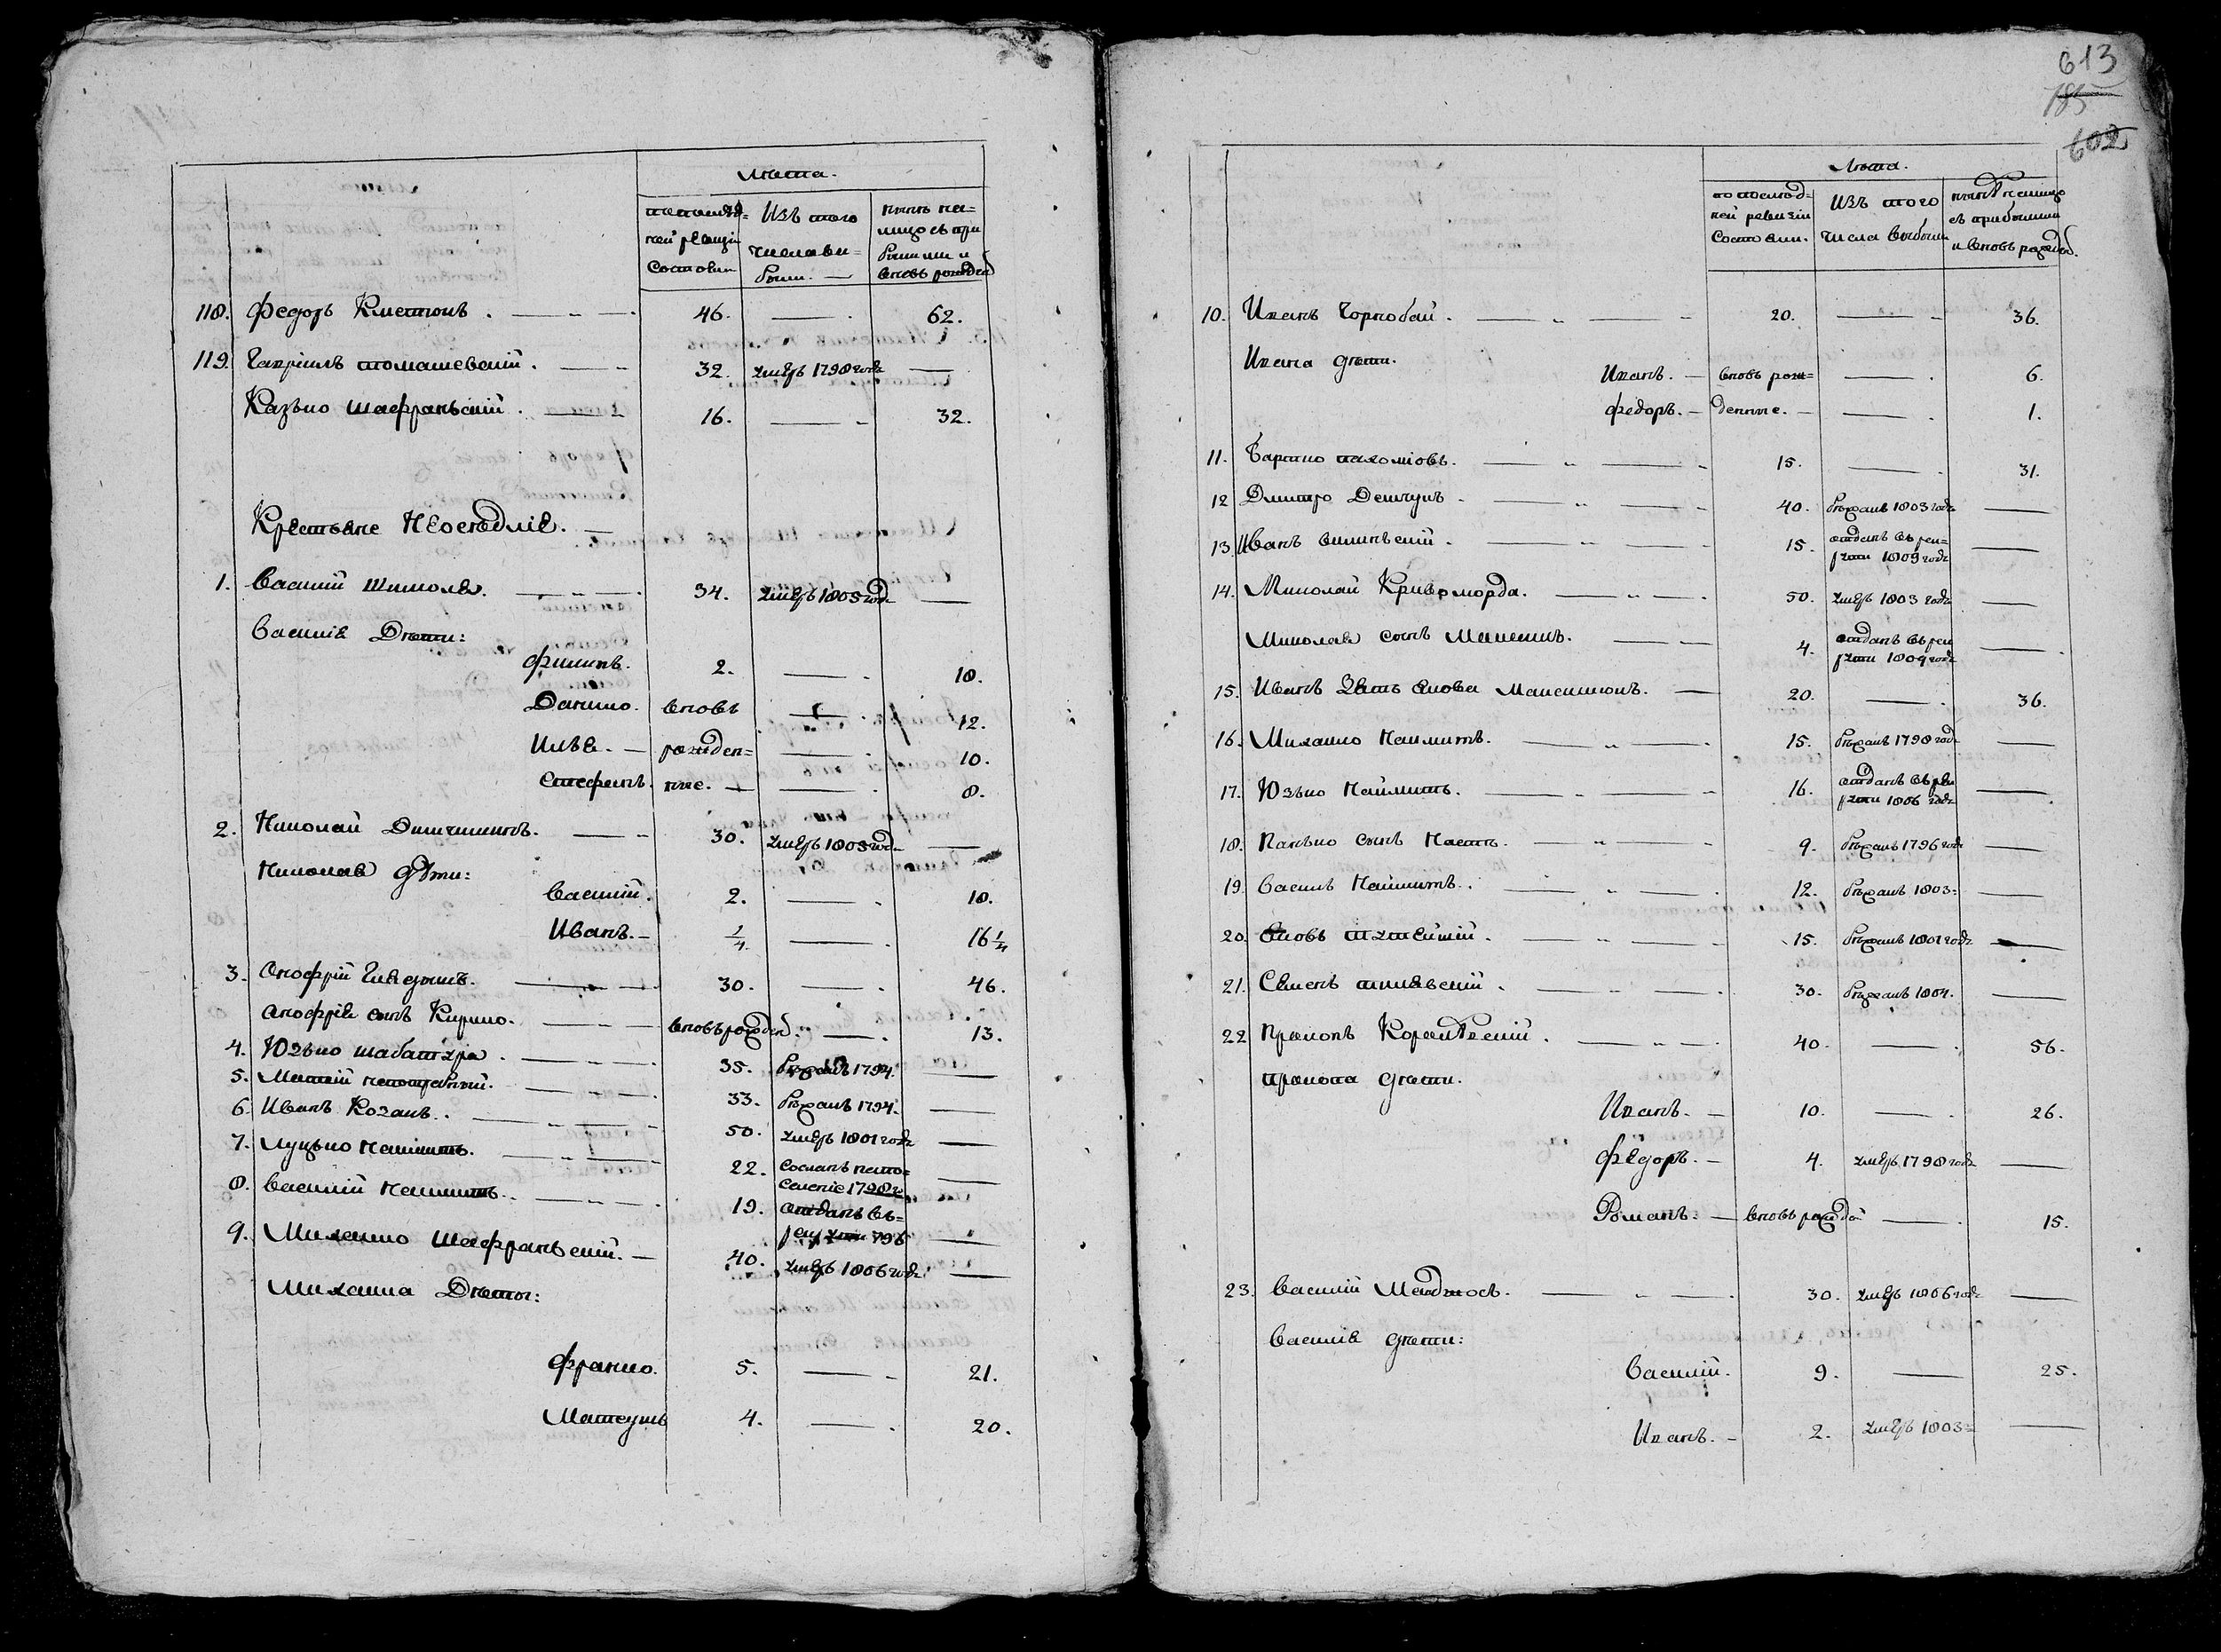 Лѣта.
по послѣд=
ней ревизіи
Состояли
Изъ того
числа вы=
были. —
нынѣ на=
лицо съ при
былыми и
вновь рожден
118. Федоръ Клетонъ. — 46. — 62.
119. Гаврилъ томашевскій. — 32. умеръ 1798 годѣ —
Казько Шафранскій. — 16. — 32.
Крестьяне Неоседліе. —
1. Василій Шиполя. — 34. умеръ 1805 годѣ —
Василія Дѣти:
Филипъ. 2. — 18.
Данило. вновь — 12.
Илья. — рожден= — 10.
Стефанъ. ные. — — 8.
2. Николай — 30. умеръ 1803 годѣ —
Николая дѣти:
Василій. 2. — 18.
Иванъ. — 1/4. — 16 1/4
3. Онофрій — 30. — 46.
Онофрія сынъ Кирило. — вновь рожден. — 13.
4. Юзько шабатура. — 35. бѣжалъ 1794. —
5. — 33. бѣжалъ 1794. —
6. Иванъ Козакъ. — 50. умеръ 1801 годѣ —
7. Луцько Наймитъ. — 22. Сосланъ на по=
селеніе 1798 г. —
8. Василій Наймитъ. — 19. отданъ въ=
рекрути 796 —
9. Михайло Шафранскій. — 40. умеръ 1806 годѣ —
Михаила Дѣти:
Франко. 5. — 21.
Матеушъ 4. — 20.
613
185
602
Лѣта.
по послѣд=
ней ревизіи
Состояли.
Изъ того
числа выбыли
нынѣ налицо
съ прибылыми
и вновь рожден.
10. Иванъ Чорнобай. — 20. — 36.
Ивана дѣти.
Иванъ. — вновь рож= — 6.
Федоръ. — денные. — — 1.
11. — 15. — 31.
12 Дмитро — 40. бѣжалъ 1803 годѣ —
13. Иванъ — 15. отданъ въ рек=
рути 1809 годѣ —
14. Миколай Кривоморда. — 50. умеръ 1803 годѣ —
Миколая сынъ Максимъ. — 4. отданъ въ рек
рути 1809 годѣ —
15. Иванъ Зять — 20. — 36.
16. Михайло Наймитъ. — 15. бѣжалъ 1798 годѣ —
17. Юзько Наймитъ. — 16. отданъ въ рек
рути 1806 годѣ —
18. Панько сынъ — 9. бѣжалъ 1796 годѣ —
19. Василь Наймитъ. — 12. бѣжалъ 1803= —
20. — 15. бѣжалъ 1801 годѣ —
21. Семенъ — 30. бѣжалъ 1804. —
22 Прокопъ — 40. — 56.
Прокопа дѣти.
Иванъ. — 10. — 26.
Федоръ. — 4. умеръ 1798 годѣ —
Романъ. — вновь рожд — 15.
23. Василій — 30. умеръ 1806 годѣ —
Василія дѣти:
Василій. 9. — 25.
Иванъ. — 2. умеръ 1803= —